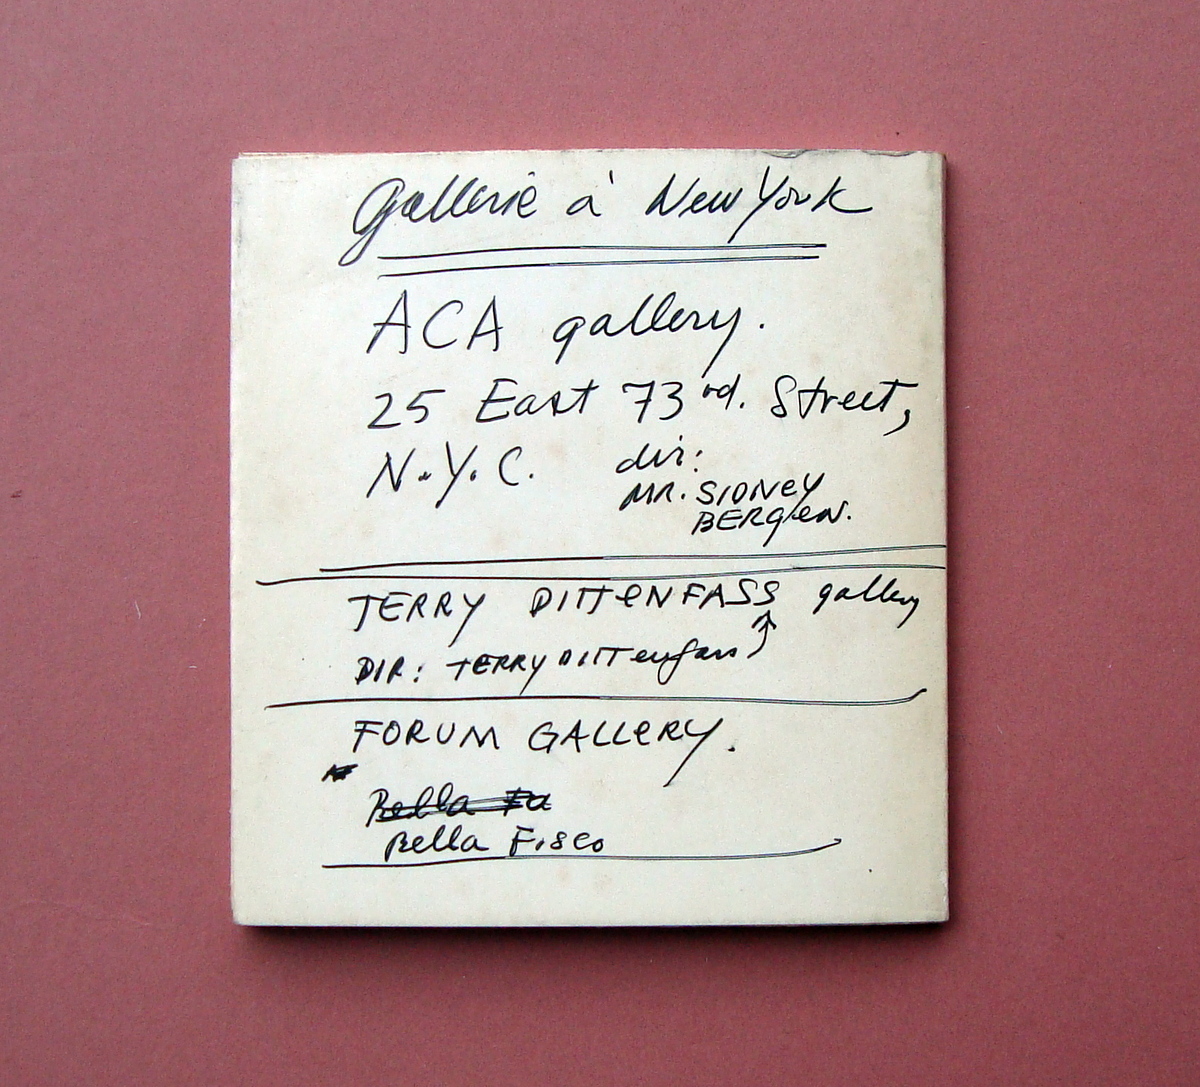 Gallerie à New York
ACA gallery.
25 East 73rd. Street,
N.Y.C. dir:
MR. SIDNEY
BERGEN.
TERRY DITTENFASS gallery
DIR: TERRY DITTenfass
FORUM GALLERY.
Bella Fa
Bella Fisco